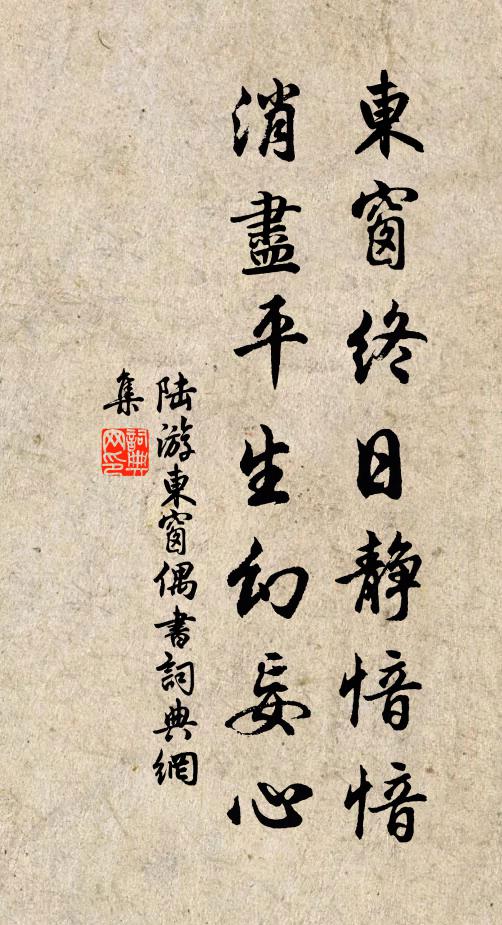 東窗終日靜愔愔
消盡平生幻妄心
陆游東窗偶書詞典網
集
詞典网印